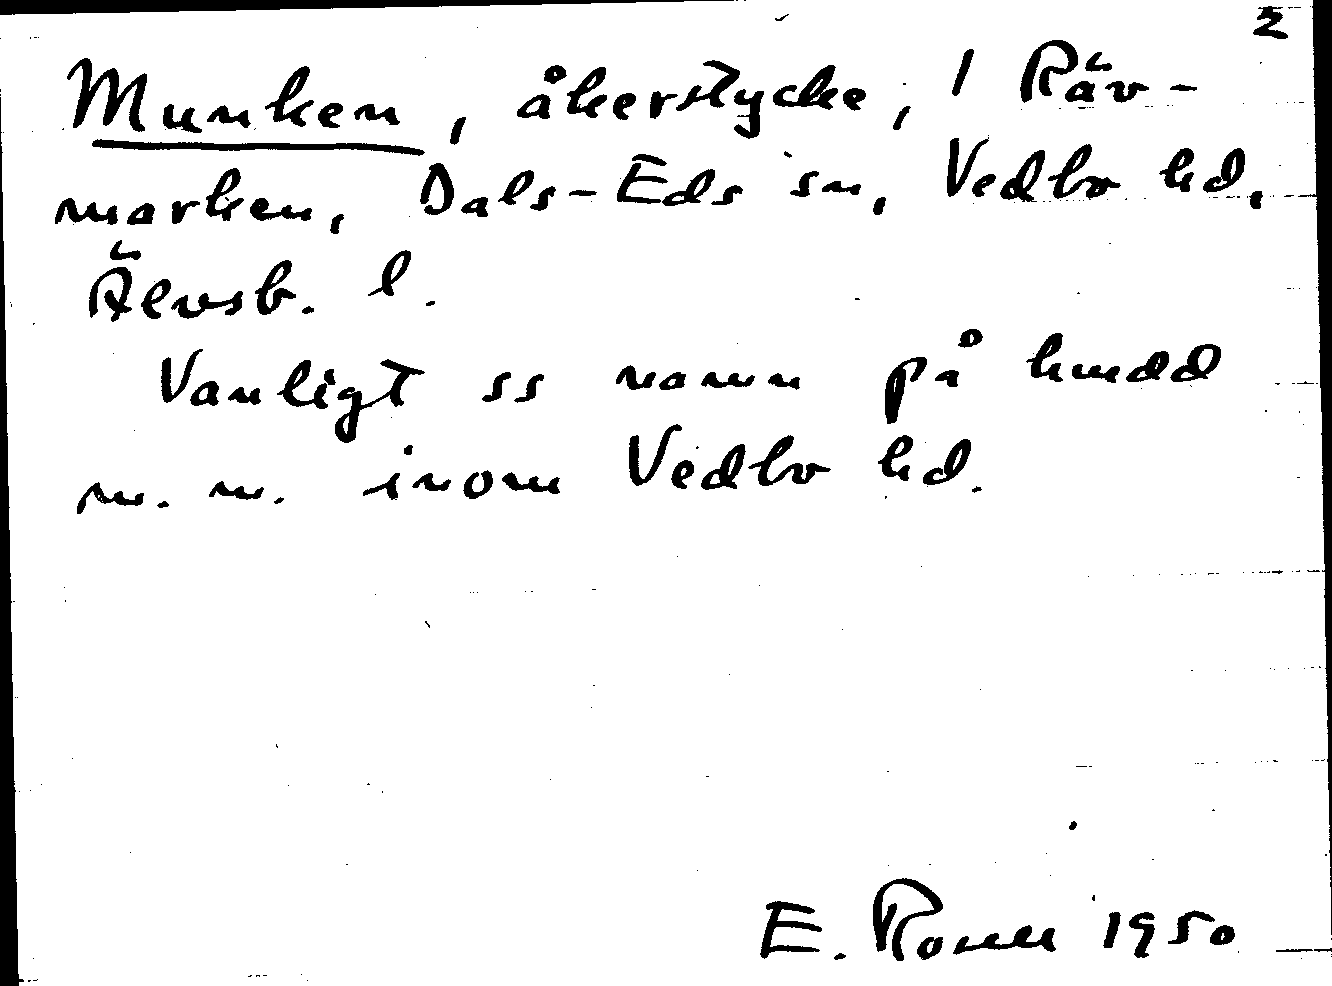 2
Munken, åkerstycke, 1 Räv-
marken, Dals-Eds sn, Vedbo hd,
Älvsb. l.
Vanligt ss namn på hmdd
m. m. inom Vedbo hd.
E. 1950